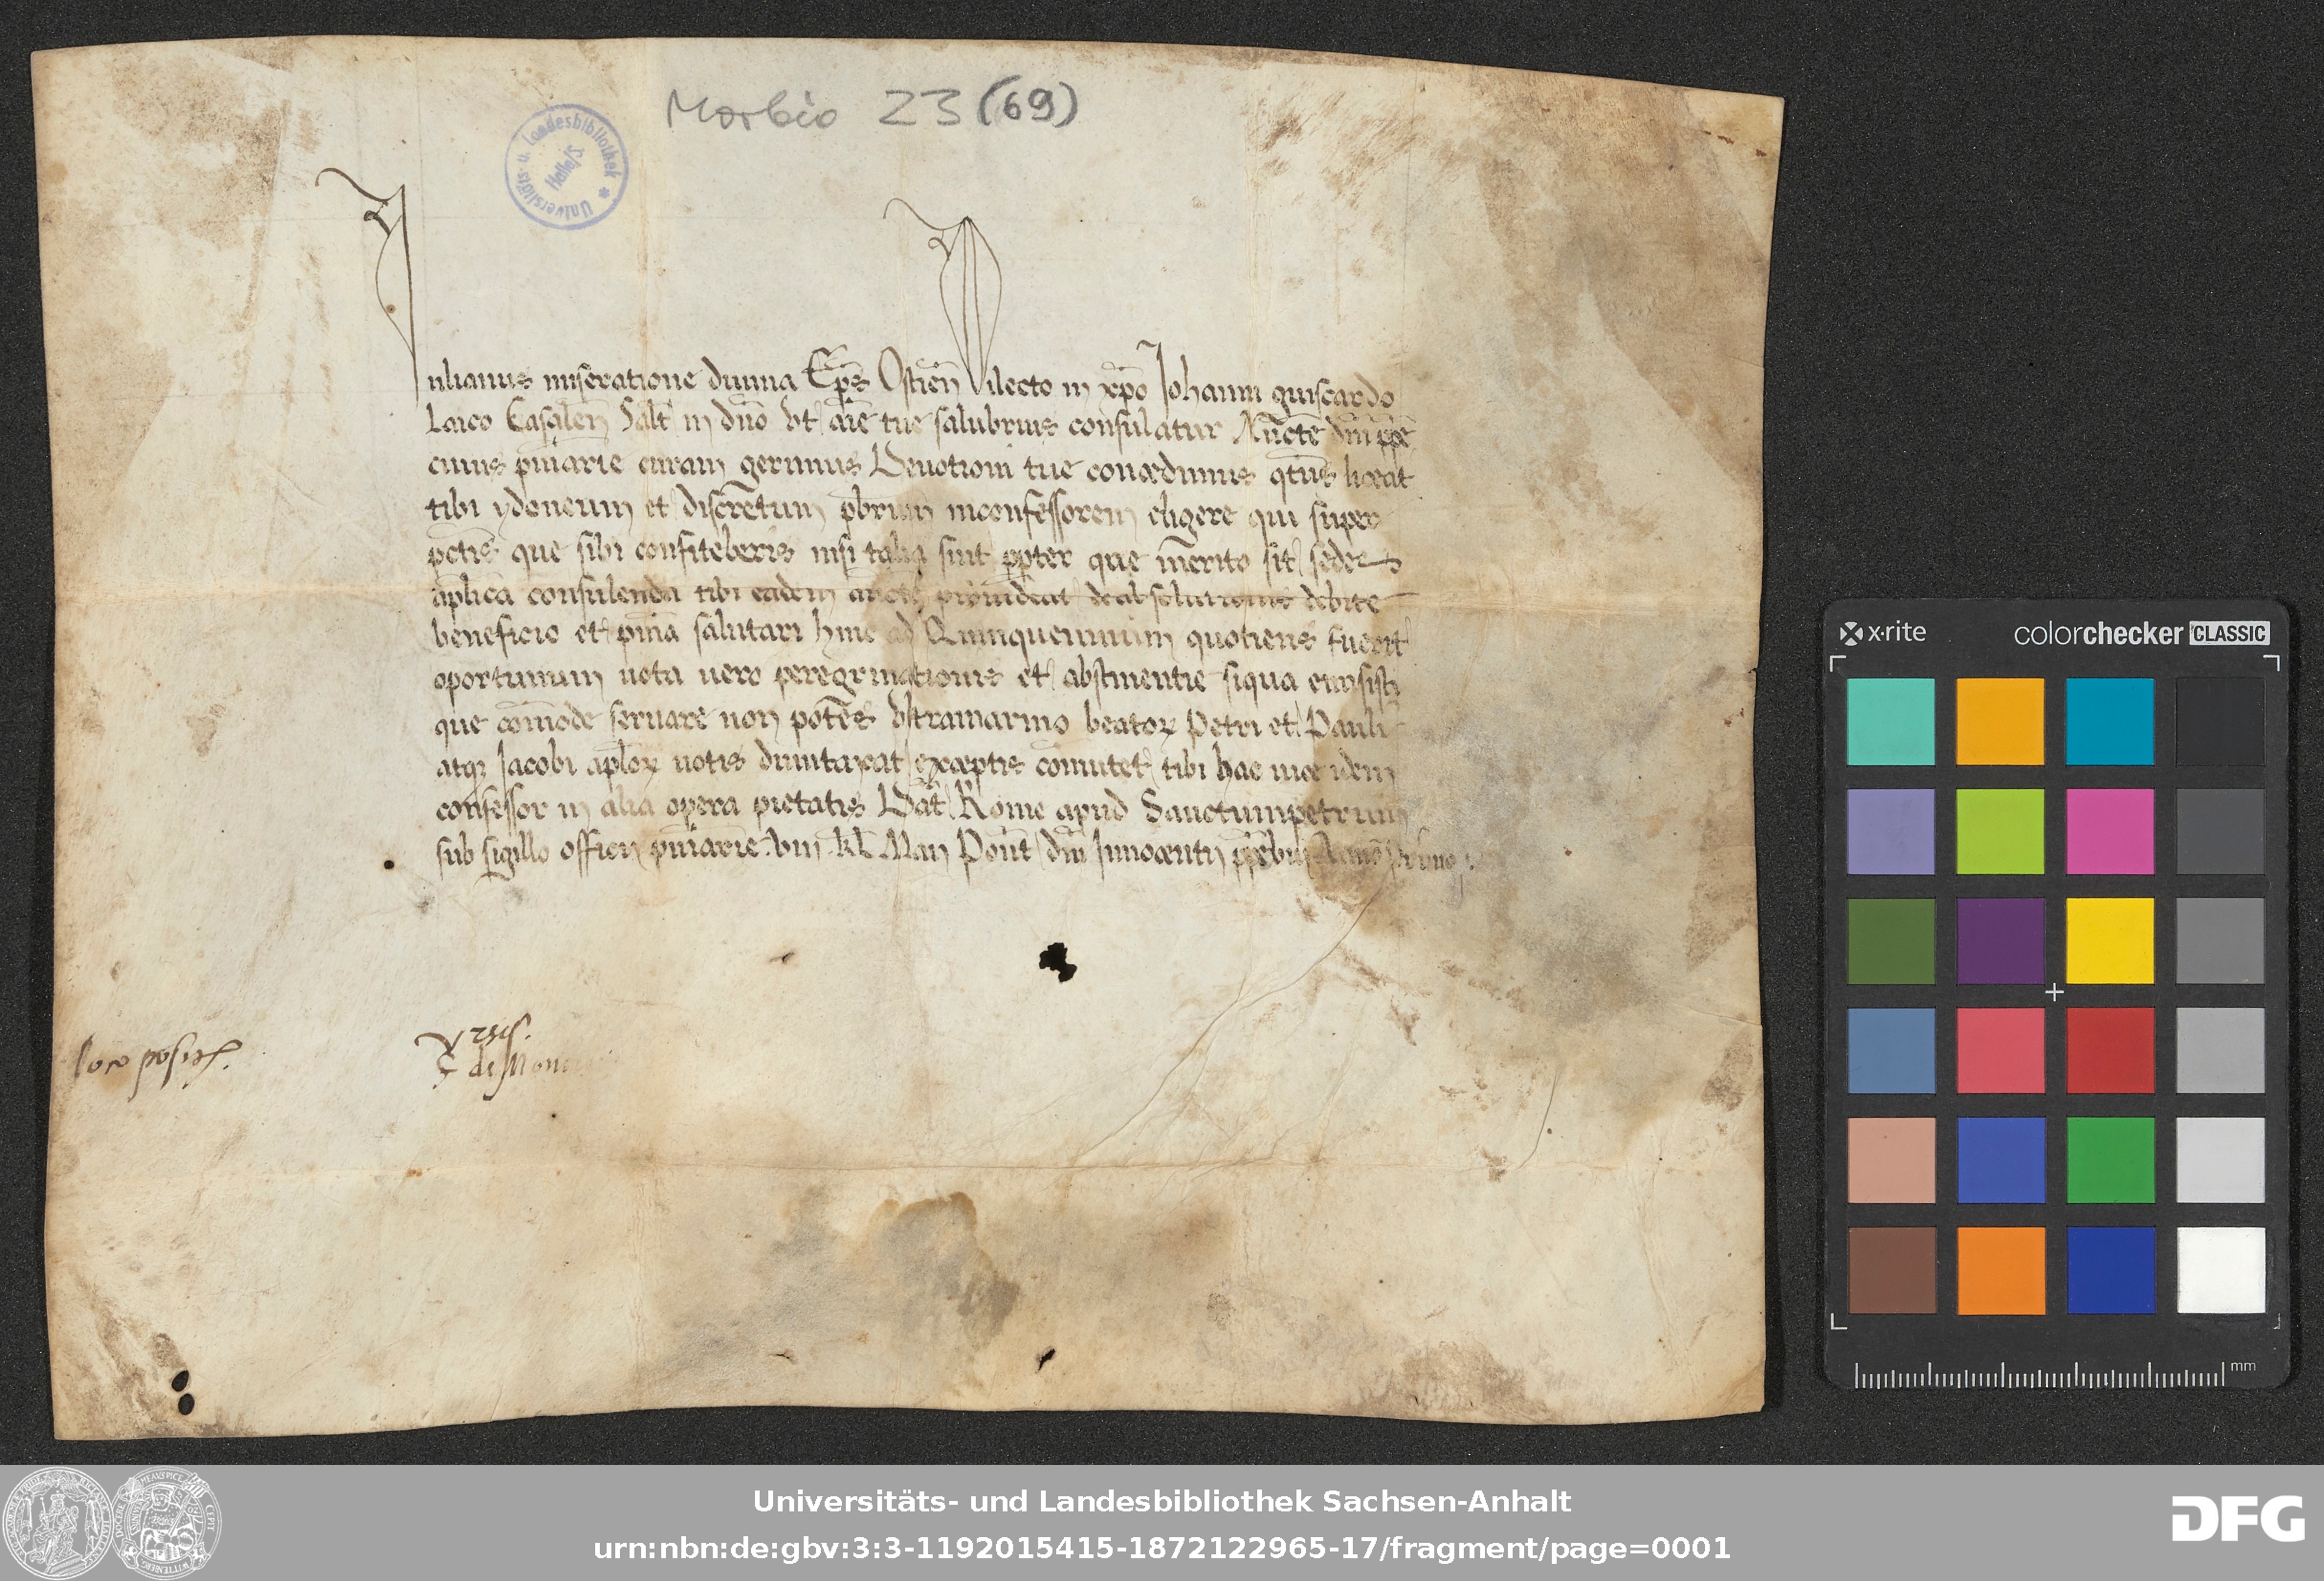 Morbio 23 (69)
Universitäts- u. Landesbibliothek * Halle/S.
Julianus miseratione diuina Ep̄s Ostien̄ Dilecto in xp̄o Johanni guiscardo
Laico Casalen̄ Salt̄ in dn̄o Vt aīe tue salubrius consulatur Auctē dn̄i pp̄e
cuius pn̄iarie curam gerimus Deuotioni tue concedimus qtūs liceat
tibi ydoneum et discretum pb̄rum inconfessorem eligere qui super
pctīs que sibi confiteberis nisi talia sint ppter que merito sit sedes
aplica consulenda tibi eadem auctē prouideat de absolutionis debite
beneficio et pn̄ia salutari hinc ad Quinquennium quotiens fuerit
oportunum uota uero peregrinationis et abstinentie siqua emisisti
que com̄ode seruare non potes vltramarino beatoꝝ Petri et Pauli
atqꝫ Jacobi apl̄oꝝ uotis duntaxat exceptis com̄utet tibi hac uice idem
confessor in alia opera pietatis Dat̄ Rome apud Sanctumpetrum
sub sigillo officij pn̄iarie .viij. kl̄ Maij Pont̄ dn̄i Innocentij pp̄e viij Anno primo
loco posit̄.
de Mon
x·rite
colorchecker CLASSIC
mm
Universitäts- und Landesbibliothek Sachsen-Anhalt
urn:nbn:de:gbv:3:3-1192015415-1872122965-17/fragment/page=0001
DFG